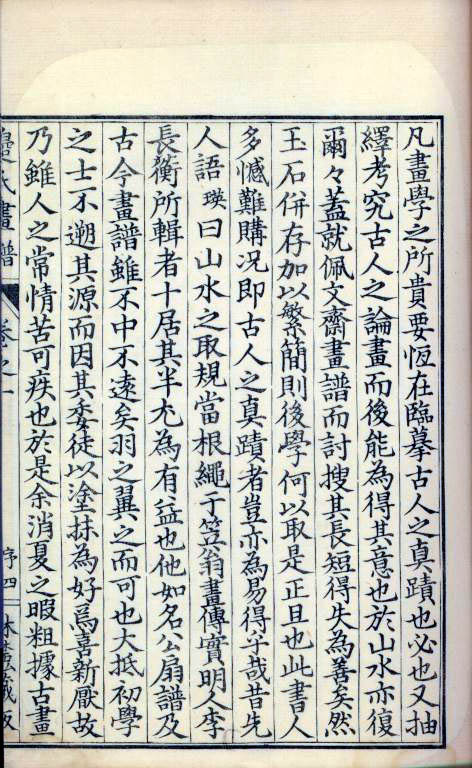 凡畫學之所貴要恆在臨摹古人之真蹟也必也又抽
繹考究古人之論畫而後能為得其意也於山水亦復
爾々蓋就佩文齋畫譜而討搜其長短得失為善矣然
玉石併存加以繁簡則後學何以取是正且也此書人
多憾難購况即古人之真蹟者豈亦為易得乎哉昔先
人語瑛曰山水之取規當根繩于笠翁畫傳實明人李
長蘅所輯者十居其半尤為有益也他如名公扇譜及
古今畫譜雖不中不遠矣羽之翼之而可也大抵初學
之士不遡其源而因其委徒以塗抹為好焉喜新厭故
乃雖人之常情苦可疾也於是余消夏之暇粗據古畫
氏畫譜 卷之一 序四